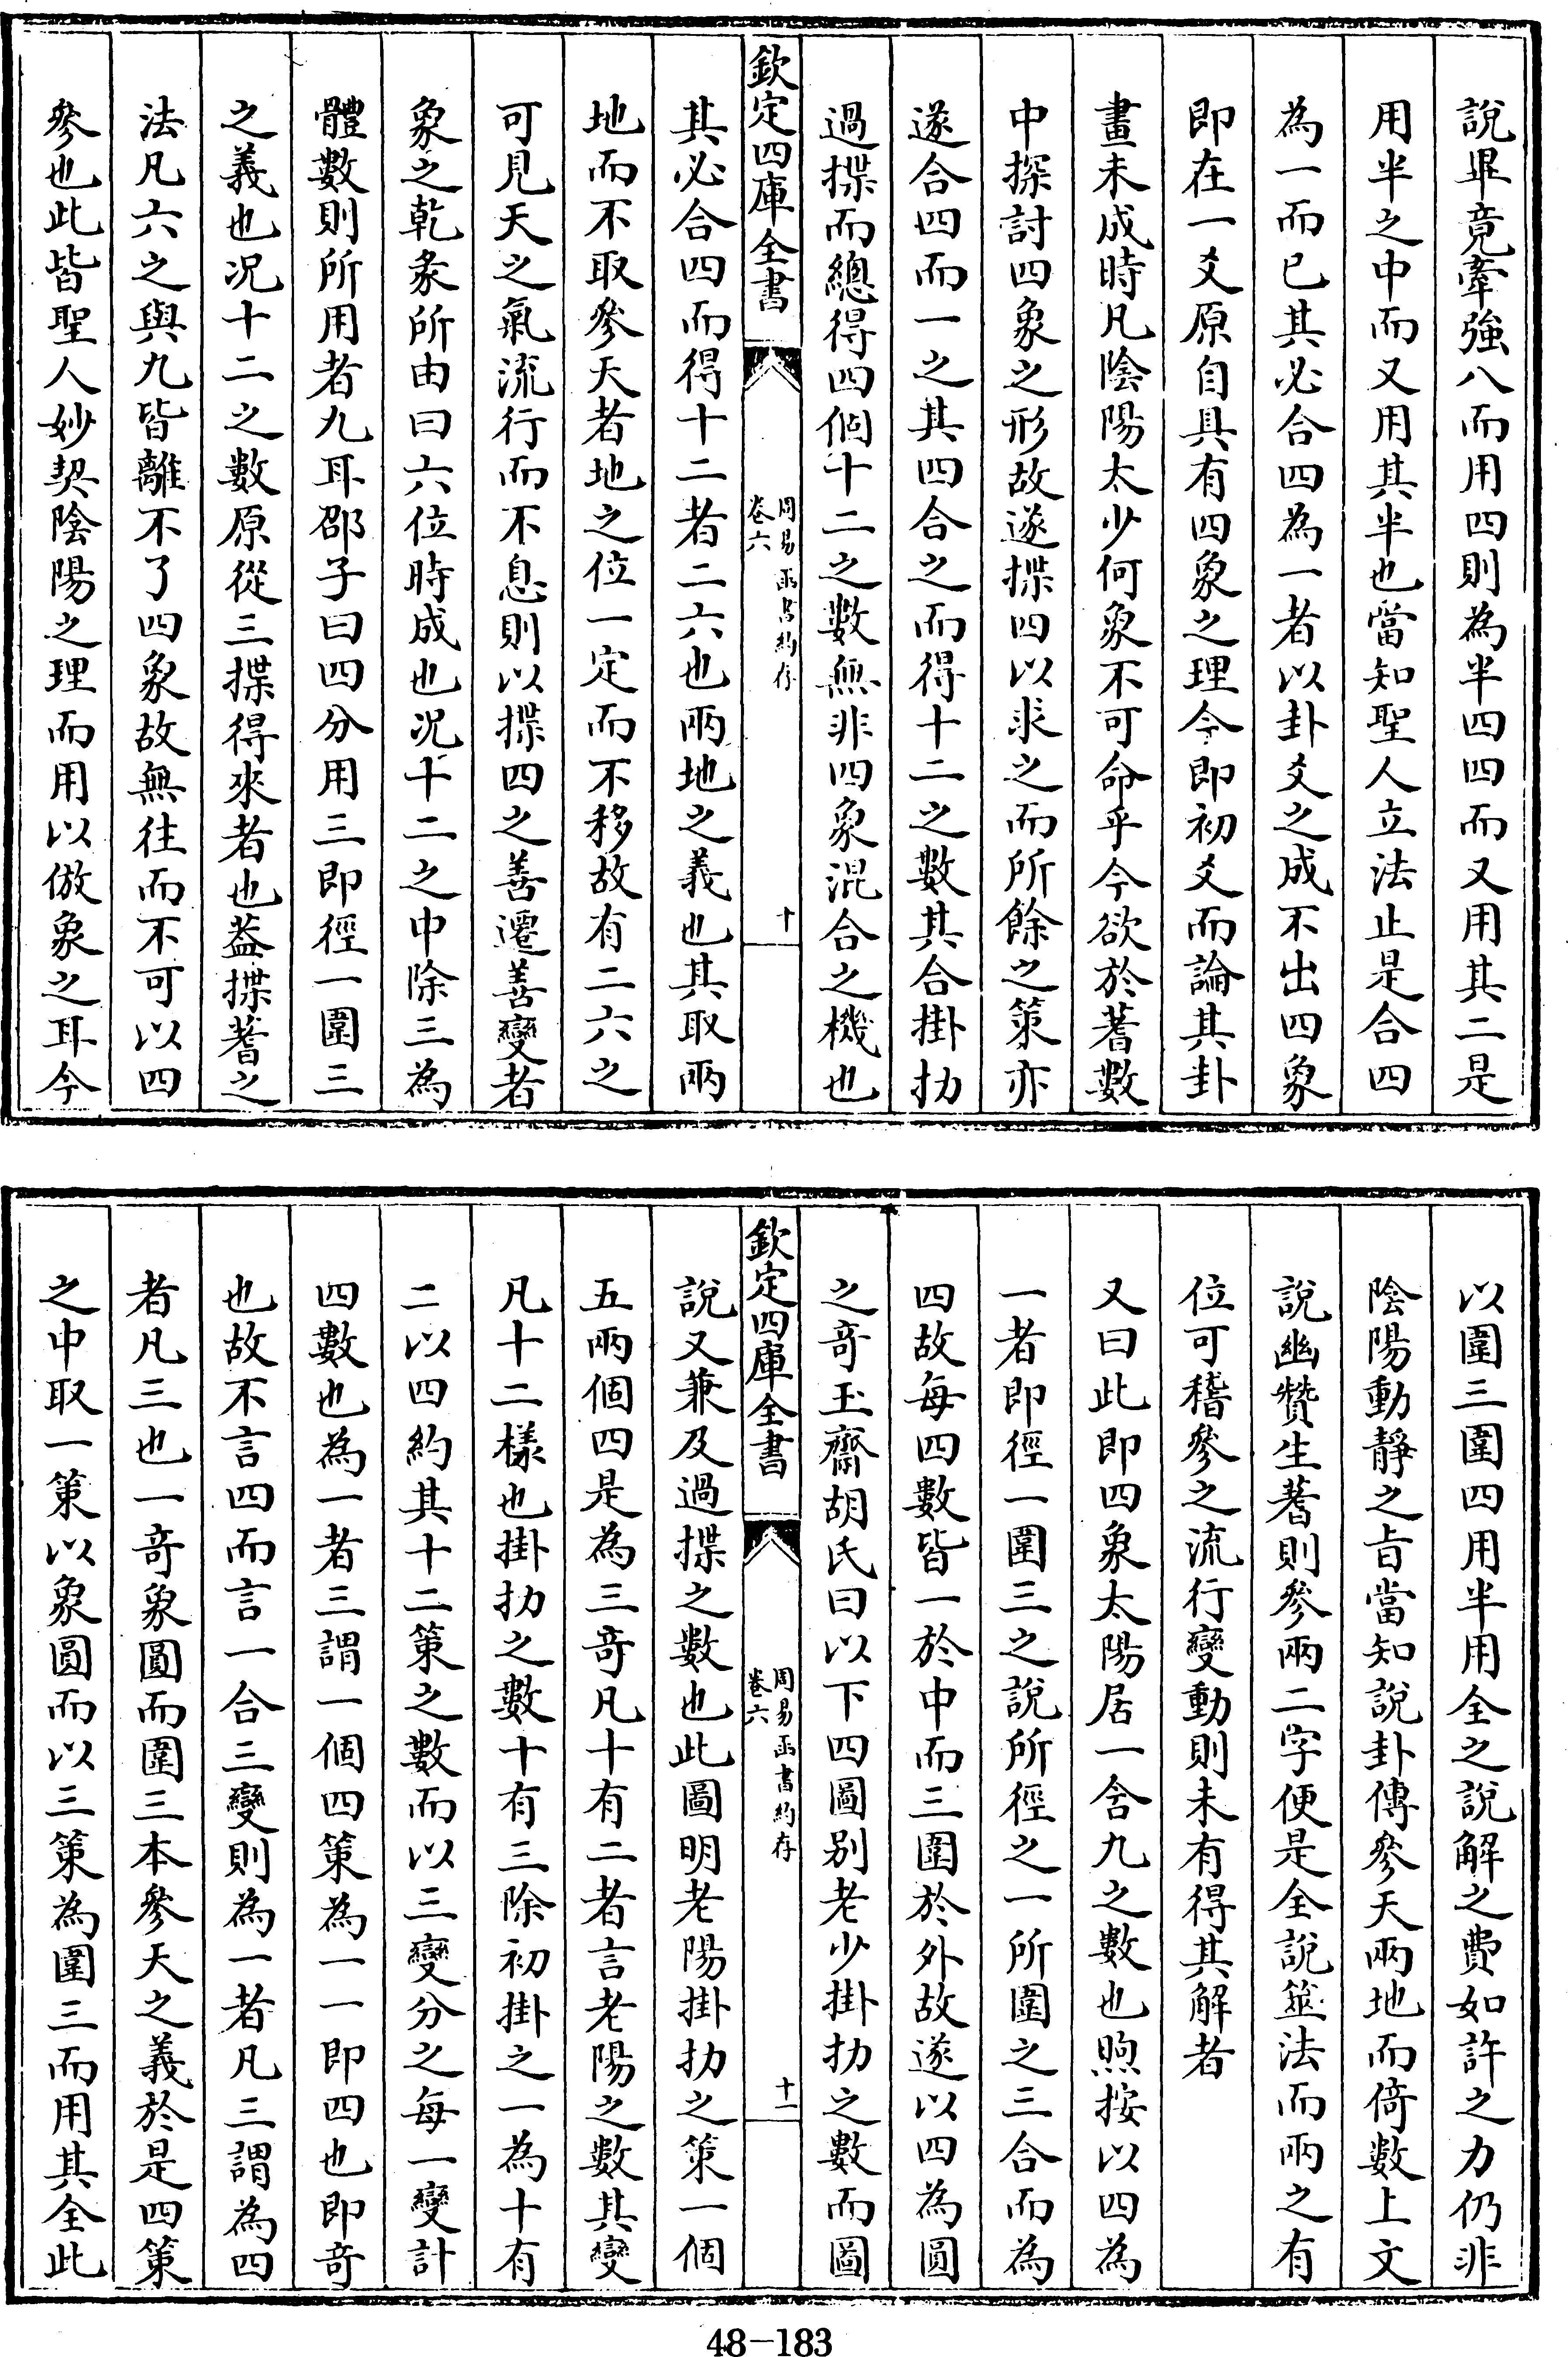 說畢竟牽強八而用四則為半四四而又用其二是
用半之中而又用其半也當知聖人立法止是合四
為一而已其必合四為一者以卦爻之成不出四象
即在一爻原自具有四象之理今即初爻而論其卦
畫未成時凡陰陽太少何象不可命乎今欲於蓍數
中探討四象之形故遂揲四以求之而所餘之策亦
遂合四而一之其四合之而得十二之數其合掛扐
過揲而總得四個十二之數無非四象混合之機也
欽定四庫全書
周易函書約存
卷六
十
其必合四而得十二者二六也兩地之義也其取兩
地而不取參天者地之位一定而不移故有二六之
可見天之氣流行而不息則以揲四之善遷善變者
象之乾彖所由曰六位時成也况十二之中除三為
體數則所用者九耳邵子曰四分用三即徑一圍三
之義也况十二之數原從三揲得來者也蓋揲蓍之
法凡六之與九皆離不了四象故無往而不可以四
參也此皆聖人妙契陰陽之理而用以倣象之耳今
以圍三圍四用半用全之說解之費如許之力仍非
陰陽動靜之旨當知說卦傳參天兩地而倚數上文
說幽贊生蓍則參兩二字便是全說筮法而兩之有
位可稽參之流行變動則未有得其解者
又曰此即四象太陽居一含九之數也煦按以四為
一者即徑一圍三之說所徑之一所圍之三合而為
四故每四數皆一於中而三圍於外故遂以四為圓
之奇玉齋胡氏曰以下四圖别老少掛扐之數而圖
欽定四庫全書
周易函書約存
卷六
十一
說又兼及過揲之數也此圖明老陽掛扐之策一個
五兩個四是為三奇凡十有二者言老陽之數其變
凡十二樣也掛扐之數十有三除初掛之一為十有
二以四約其十二策之數而以三變分之每一變計
四數也為一者三謂一個四策為一一即四也即奇
也故不言四而言一合三變則為一者凡三謂為四
者凡三也一奇象圓而圍三本參天之義於是四策
之中取一策以象圓而以三策為圍三而用其全此
48-183